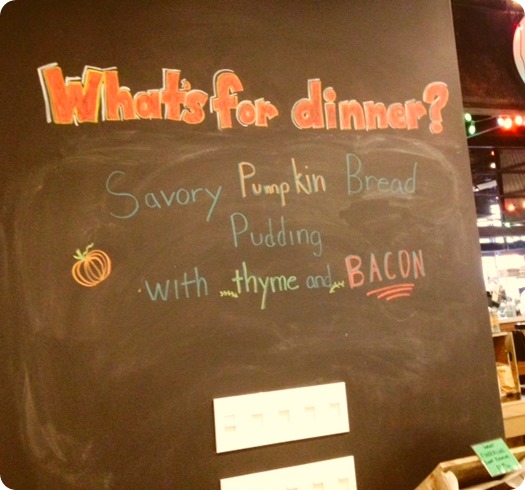 What's for dinner?
Savory Pumpkin Bread
Pudding
with thyme and BACON